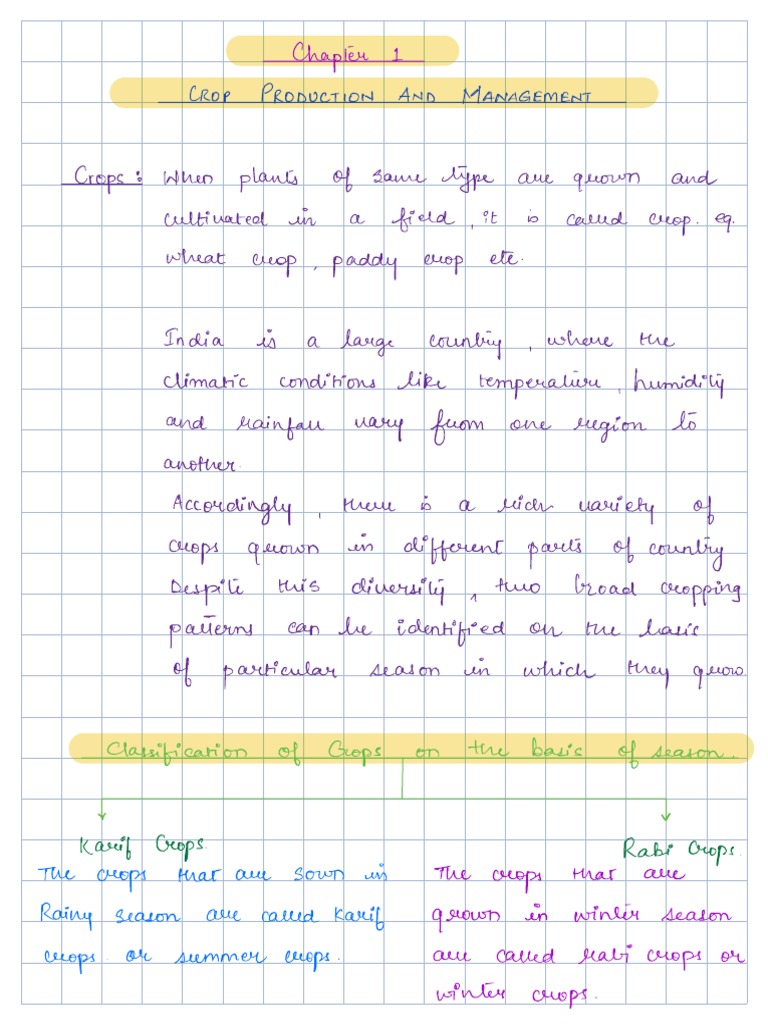 Chapter 1
CROP PRODUCTION AND MANAGEMENT
Crops : When plants of same type are grown and
cultivated in a field, it is called crop. eg.
wheat crop, paddy crop etc.
India is a large country, where the
climatic conditions like temperature, humidity
and rainfall vary from one region to
another.
Accordingly, there is a rich variety of
crops grown in different parts of country
Despite this diversity, two broad cropping
patterns can be identified on the basis
of particular season in which they grow
Classification of Crops on the basis of season.
Karif Crops.
Rabi Crops.
The crops that are sown in
Rainy season are called Karif
crops. or summer crops.
The crops that are
grown in winter season
are called rabi crops or
winter crops.